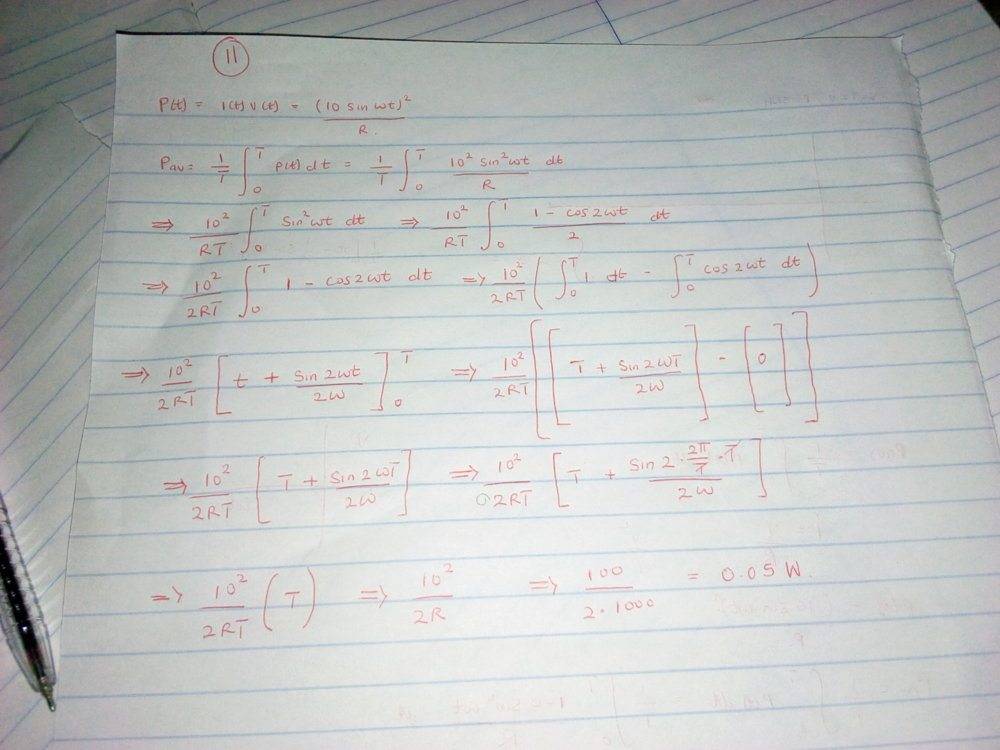 11
P(t) = I(t) V(t) = (10 sin ωt)² / R.
Pav = 1/T ∫₀ᵀ P(t) dt = 1/T ∫₀ᵀ 10² sin²ωt / R dt
⇒ 10²/RT ∫₀ᵀ Sin²ωt dt ⇒ 10²/RT ∫₀ᵀ 1 - cos2ωt / 2 dt
⇒ 10²/2RT ∫₀ᵀ 1 - cos2ωt dt ⇒ 10²/2RT ( ∫₀ᵀ 1 dt - ∫₀ᵀ cos2ωt dt )
⇒ 10²/2RT [ t + Sin2ωt / 2ω ]₀ᵀ ⇒ 10²/2RT [ [ T + Sin2ωT / 2ω ] - [ 0 ] ]
⇒ 10²/2RT [ T + Sin2ωT / 2ω ] ⇒ 10²/2RT [ T + Sin2·2π/T·T / 2ω ]
⇒ 10²/2RT ( T ) ⇒ 10²/2R ⇒ 100 / 2·1000 = 0.05 W.